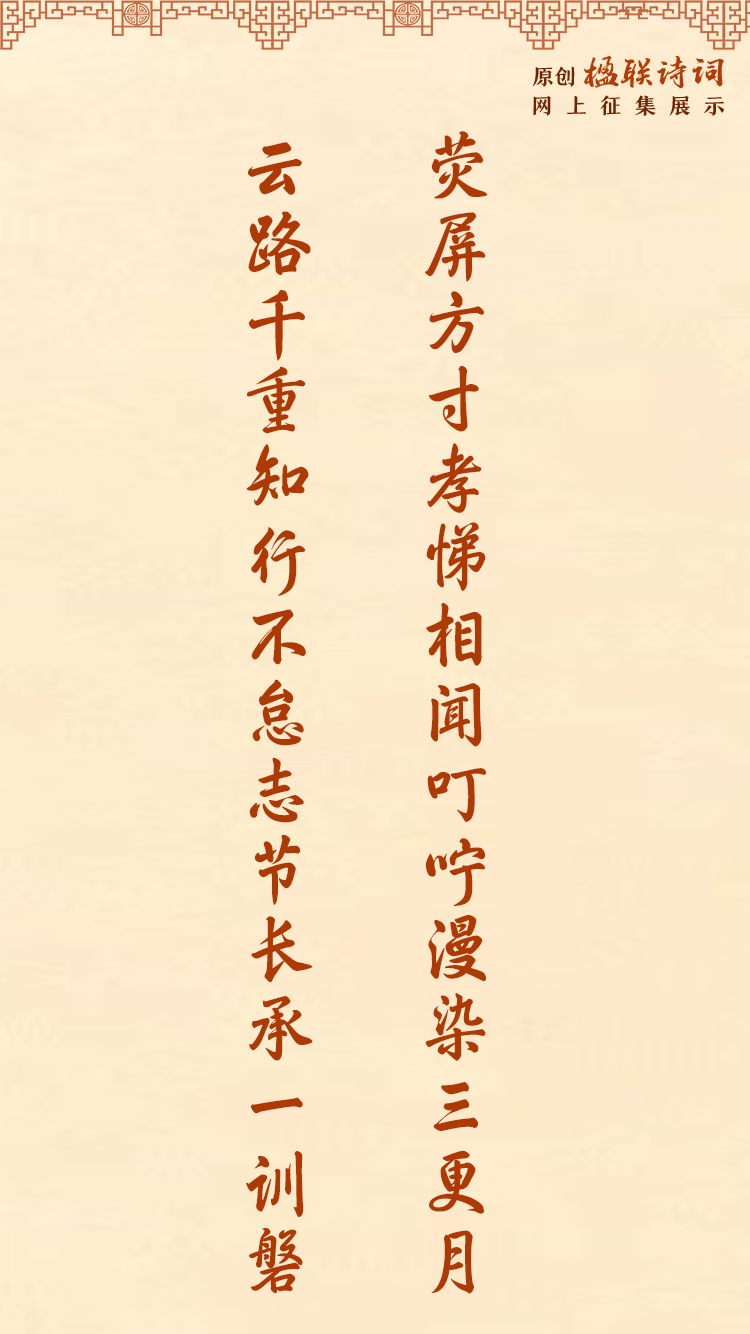 原创 楹联诗词
网上征集展示
荧屏方寸孝悌相闻叮咛漫染三更月
云路千重知行不怠志节长承一训磐